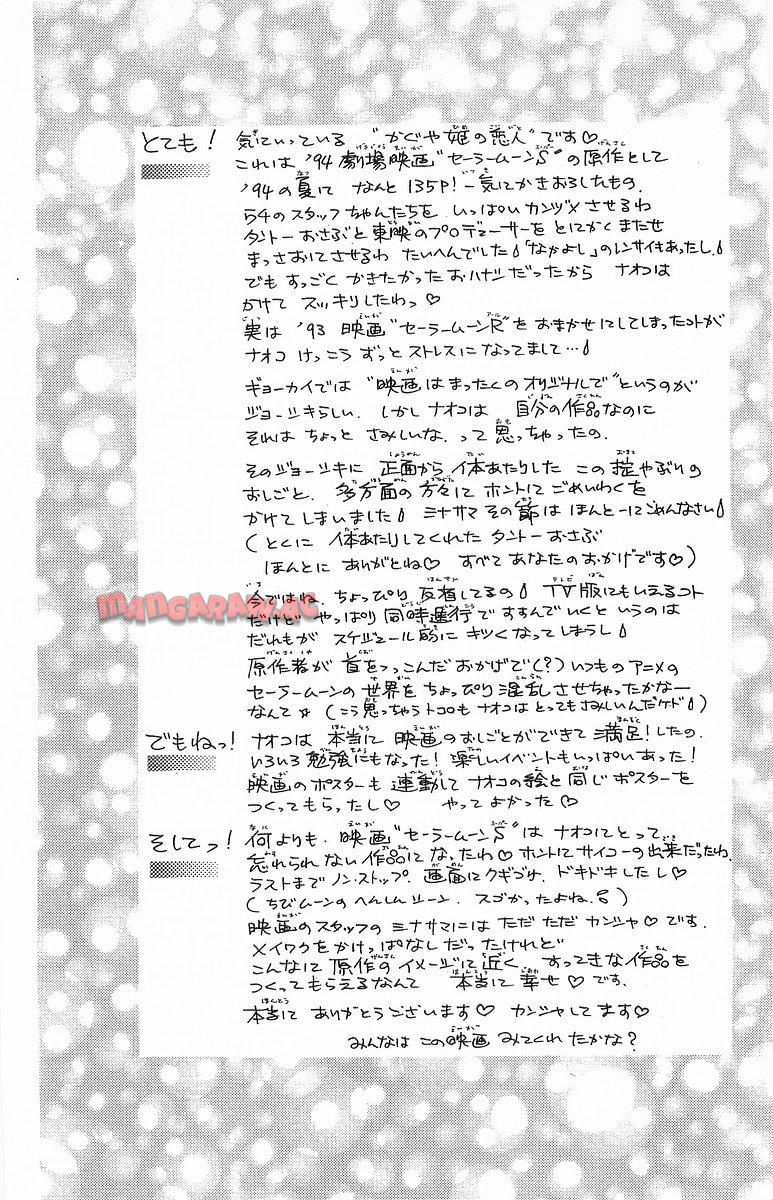 とても! 気にいっている "かぐや姫の恋人" です♡
これは '94 劇場映画 "セーラームーンS" の 原作として
'94の夏に なんと 135P! 一気にかきおろしたもの.
54のスタッフちゃんたちを いっぱいカンヅメさせるわ
タントーおさぶと東映のプロデューサーを とにかくまたせ
まっさおにさせるわ たいへんでした!「なかよし」のレンサイもあったし!
でも すっごく かきたかったおハナシだったから ナオコは
かけて スッキリしたわっ♡
実は '93 映画 "セーラームーンR" を おまかせにしてしまったコトが
ナオコ けっこう ずっと ストレスに なってまして…!
ギョーカイでは "映画は まったくのオリジナルで" というのが
ジョーシキらしい. しかし ナオコは 自分の作品なのに
それは ちょっと さみしいな. って 思っちゃったの.
そのジョーシキに 正面から 体あたりした この掟やぶりの
おしごと. 多方面の 方々に ホントに ごめいわくを
かけてしまいました! ミナサマ その節は ほんとーにごめんなさい!
(とくに 体あたりしてくれた タントーおさぶ
ほんとに ありがとね♡ すべてあなたのおかげです♡)
今ではね、ちょっぴり 反省してるの! TV版にもいえるコト
だけど やっぱり 同時進行で すすんでいくと いうのは
だれもが スケジュール的に キツくなってしまうし!
原作者が 首をつっこんだ おかげで(?) いつものアニメの
セーラームーンの世界を ちょっぴり 混乱させちゃったかなー
なんて☆ (こう思っちゃうトコロも ナオコは とってもさみしいんだケド!)
でもねっ! ナオコは 本当に 映画のおしごとができて 満足!したの.
いろいろ勉強にもなった! 楽しいイベントもいっぱいあった!
映画のポスターも 連動して ナオコの絵と同じポスターを
つくってもらったし♡ やってよかった♡
そしてっ! 何よりも. 映画 "セーラームーンS" は ナオコにとって
忘れられない作品に なったわ♡ ホントにサイコーの出来だったわ.
ラストまで ノン・ストップ. 画面にクギづけ. ドキドキしたし♡
(ちびムーンの へんしんシーン. スゴかったよね.)
映画のスタッフの ミナサマには ただ ただ カンシャ♡ です.
メイワクをかけっぱなしだったけれど
こんなに 原作の イメージに 近く すってきな作品を
つくってもらえるなんて 本当に 幸せ♡ です.
本当に ありがとうございます♡ カンシャしてます♡
みんなは この映画 みてくれたかな?
MANGARAW.AC